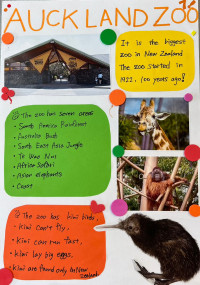 AUCKLAND ZOO
ZOO
It is the biggest
zoo in New Zealand
The zoo started in
1922, 100 years ago!
① The zoo has seven areas
• South America Rainforest
• Australia Bush
• South East Asia Jungle
• Te Wao Nui
• Africa Safari
• Asian elephants
• Coast
② The zoo has kiwi birds.
• Kiwi can't fly,
• Kiwi can run fast,
• Kiwi lay big eggs.
• Kiwi are found only in New
Zealand